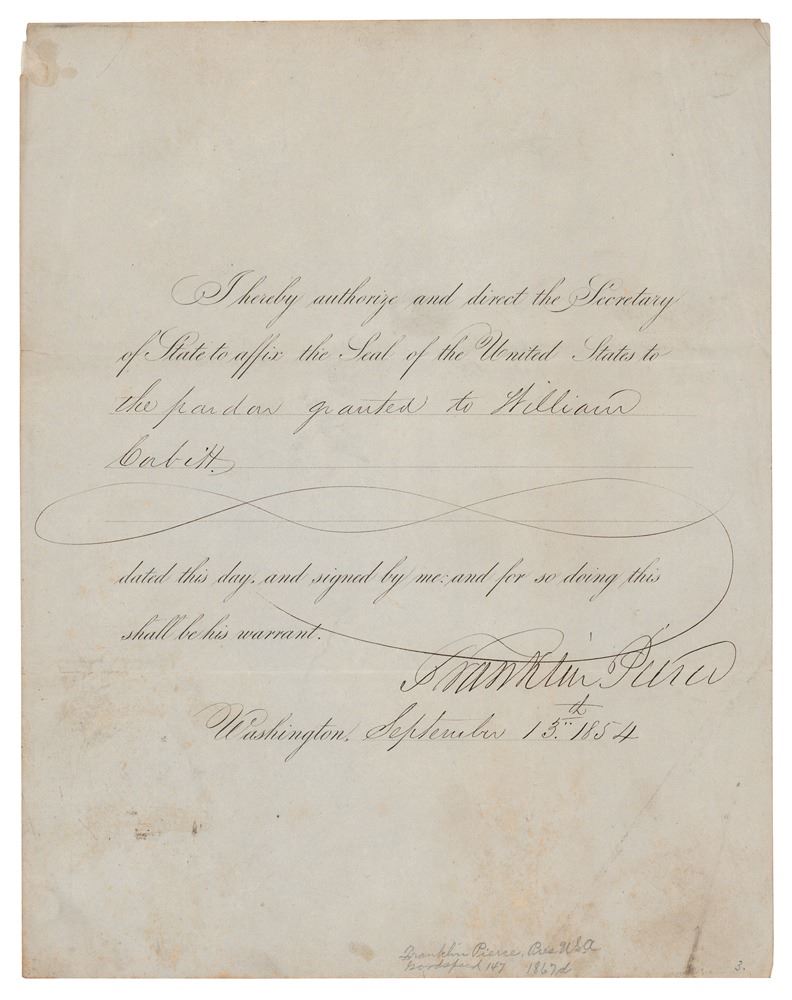 I hereby authorize and direct the Secretary
of State to affix the Seal of the United States to
the pardon granted to William
Corbitt
dated this day, and signed by me: and for so doing this
shall be his warrant.
Franklin Pierce
Washington, September 13th 1854
Franklin Pierce, Pres. U.S.A
147 1867d
3.